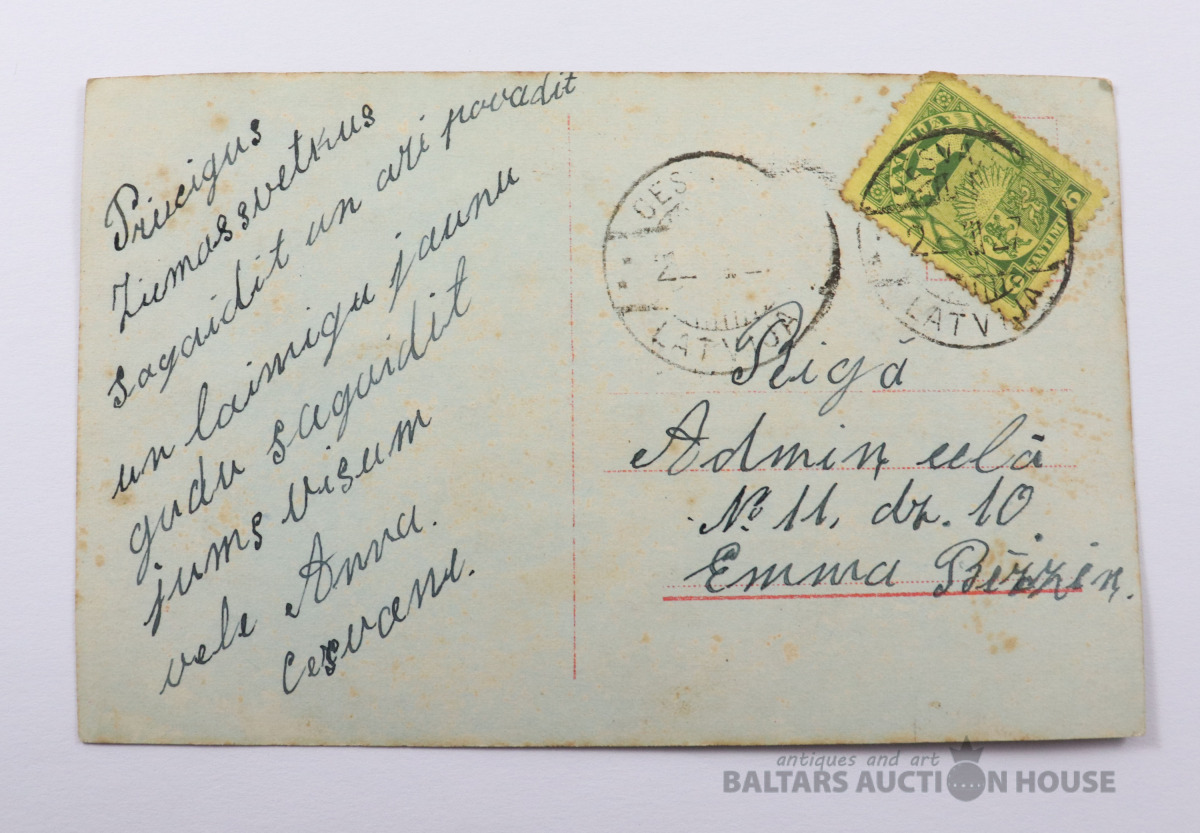 Priecigus
Ziemassvetkus
sagaidit un ari povadit
un laimigu jaunu
gudu sagaidit
jums visum
vele Anna.
Cesvane.
CES
LATVIJA
LATVIJA
Reigā
Admiņ ielā
№ 11, dz. 10
Emma Bērziņ.
antiques and art
BALTARS AUCTION HOUSE